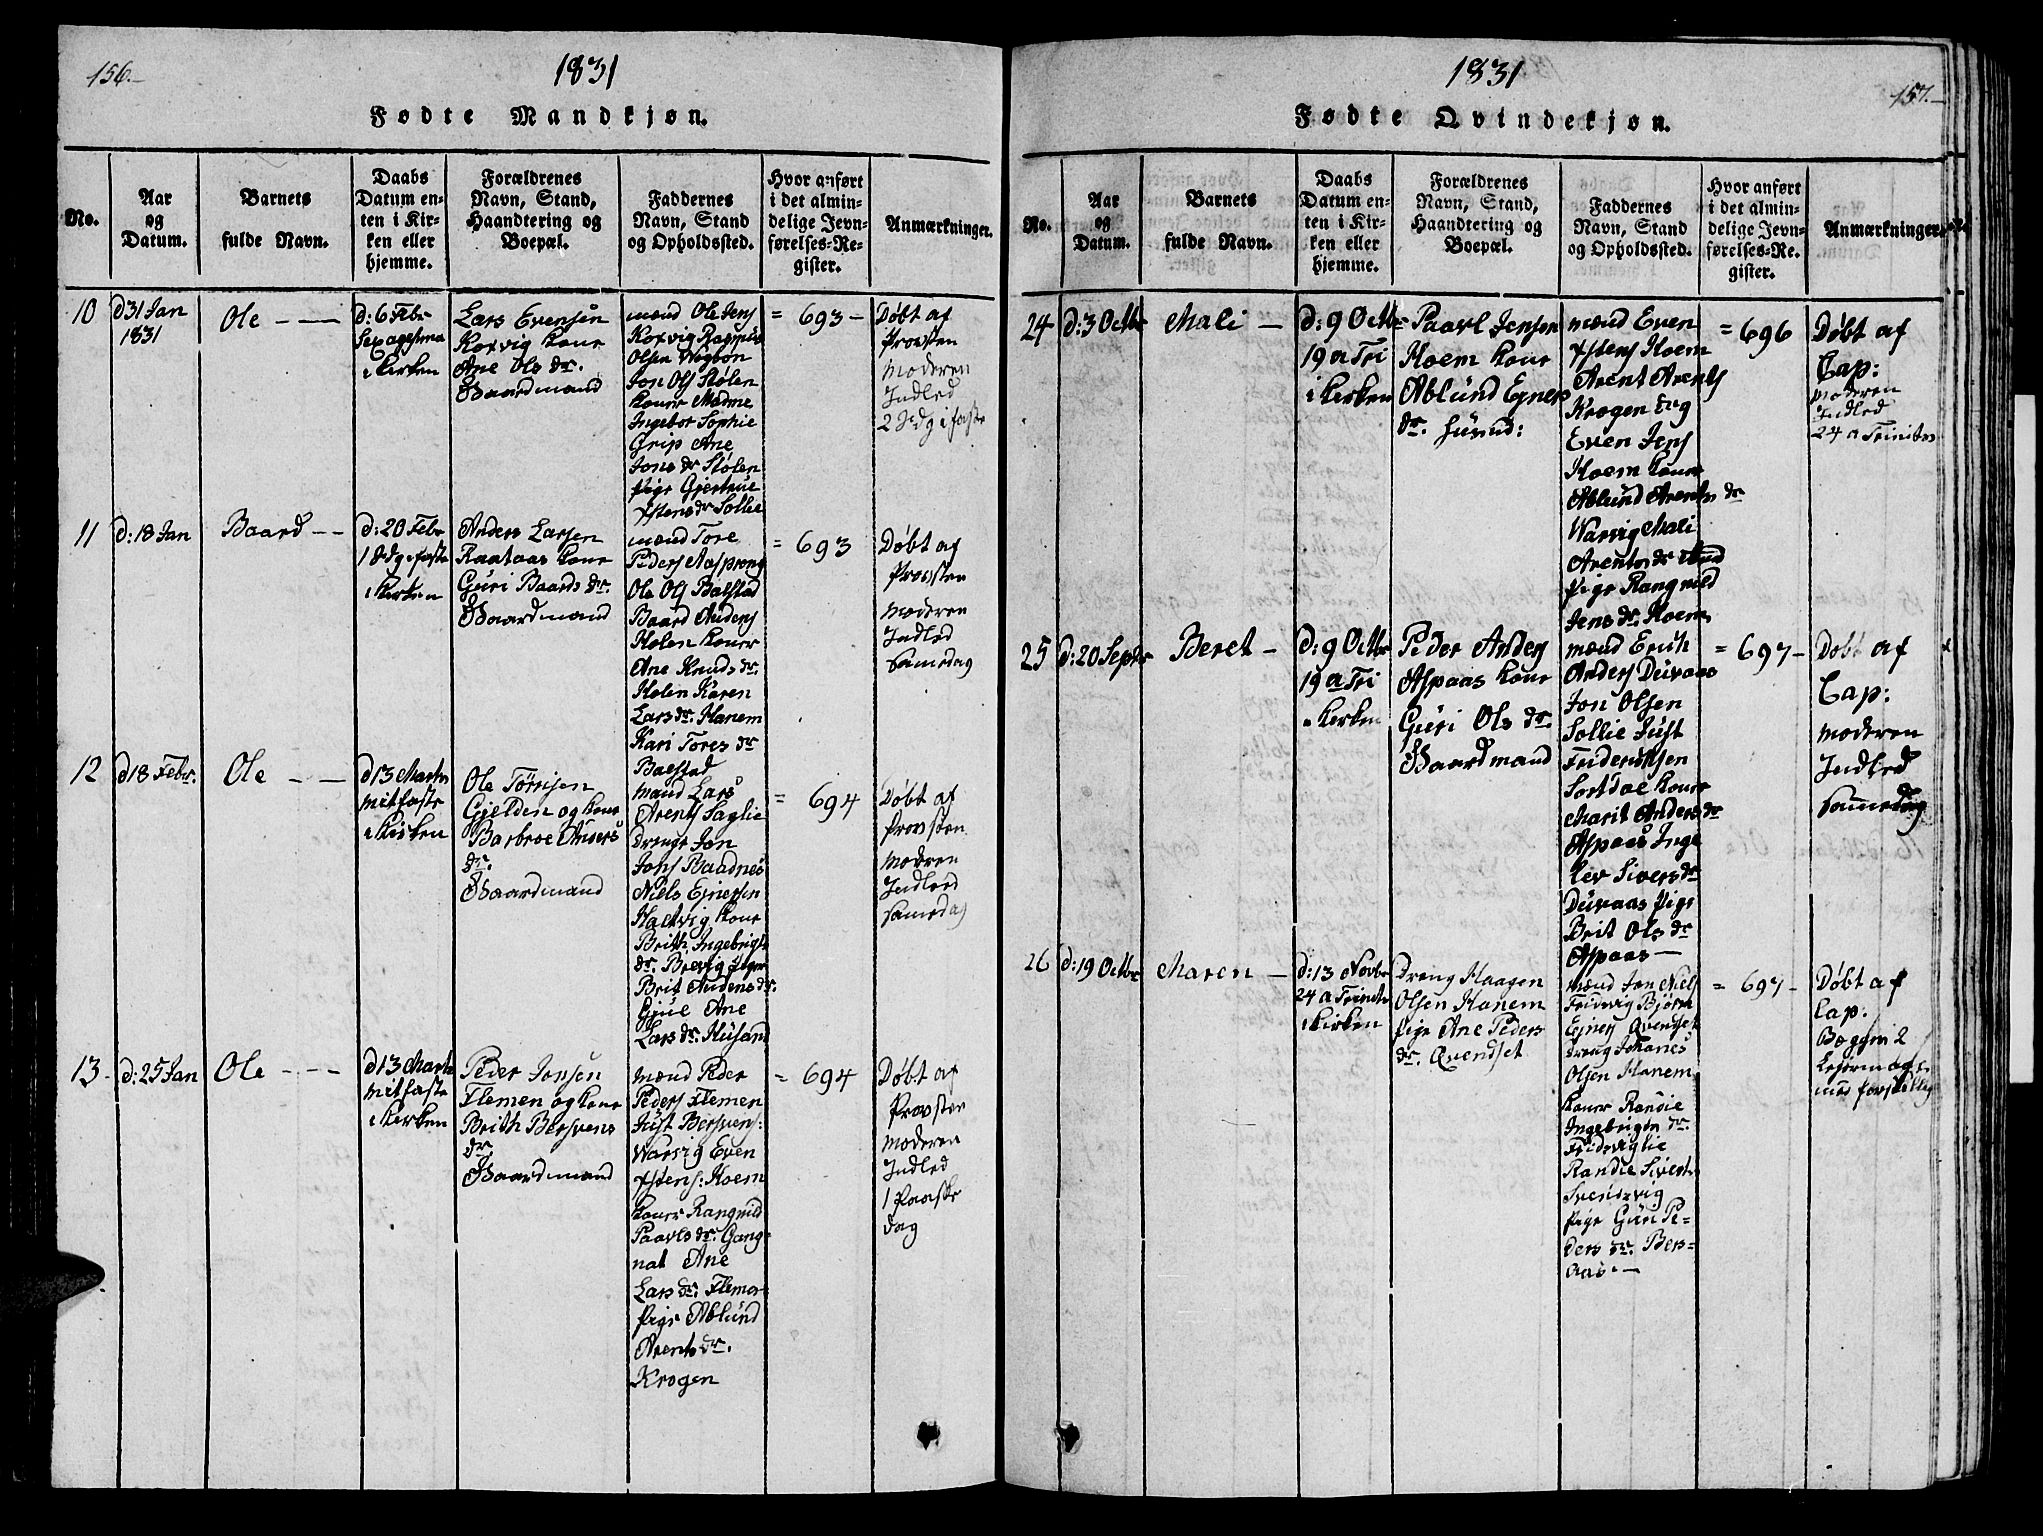 156.
1831
Fødte Mandkjøn.
No.
Aar
og
Datum.
Barnets
fulde Navn.
Daabs
Datum en-
ten i Kir-
ken eller
hjemme.
Forældrenes
Navn, Stand,
Haandtering og
Boepæl.
Faddernes
Navn, Stand
og Opholdssted.
Hvor anført
i det almin-
delige Jevn-
førelses-Re-
gister.
Anmærkninger.
10
d31 Jan
1831
Ole
d: 6 Febr
Sexagesima
i Kirken
Lars Evensen
Korvig Kone
Ane Ols dr.
Gaardmand
mænd Ole Jens
Korvig Rasmus
Olsen
Jon Ols Stølen
Koner Madme
Ingebor Sophie
Grip Ane
Jons dr Stølen
Pige Gjertrue
Ystens dr Sollie
= 693 -
Døbt af
Provsten
moderen
Indled
2 Sdg i faste
11
d: 18 Jan
Baard
d: 20 Febr
1 Sdg i faste
i Kirken
Anders Larsen
Raataas Kone
Guri Baards dr.
Gaardmand
mænd Tore
Peders Aspeong
Ole Ols Balstad
Baard Anders
Holen Koner
Ane Knuds dr.
Holen Karen
Lars dr. Hanem
Kari Tores dr
Balstad
= 693
Døbt af
Provsten
moderen
Indled
samedag
12
d18 Febr.
Ole
d13 Marts
mitfaste
i Kirken
Ole Tørrisen
Gjelden og Kone
Barbroe Anders
dr.
Gaardmand
mænd Lars
Arents Saglie
Drenge Jon
Jons Baadnes
Niels Ejnersen
Haltvig Kone
Brith Ingebrigts
dr. Brevig Piger
Brit Anders dr.
Gjul Ane
Lars dr. Husand
= 694
Døbt af
Provsten
moderen
Indled
samedag
13
d: 25 Jan
Ole
d13 Marts
mitfaste
i Kirken
Peder Jonsen
Flemen og Kone
Brith Bersvens
dr.
Gaardmand
mænd Peder
Peders Flemen
Just Bersvens:
Warvig Even
Ystens: Hoem
Koner Rangnild
Paavls dr. Gang-
nat Ane
Lars dr. Flemen
Pige Ablund
Arents dr.
Krogen
= 694
Døbt af
Provsten
moderen
Indled
1 Paaske
dag
157.
1831
Fødte Qvindekjøn.
No.
Aar
og
Datum.
Barnets
fulde Navn.
Daabs
Datum en-
ten i Kir-
ken eller
hjemme.
Forældrenes
Navn, Stand,
Haandtering og
Boepæl.
Faddernes
Navn, Stand
og Opholdssted.
Hvor anført
i det almin-
delige Jevn-
førelses-Re-
gister.
Anmærkninger.
24
d: 3 Octbr
Mali
d: 9 Octbr
19 a Tri
i Kirken
Paavl Jensen
Hoem Kone
Ablund Ejners
dr. Huusd:
mænd Even
Ystens Hoem
Arent Arents
Krogen og
Even Jens
Hoem Koner
Ablund Arents dr
Warvig Mali
Arents dr
Pige Rangnild
Jens dr. Hoem
= 696
Døbt af
Cap:
moderen
Indled
24 a Trinits
25
d: 20 Septbr
Beret
d: 9 Octbr
19 a Tri
i Kirken
Peder Anders
Aspaas Kone
Guri Ols dr.
Gaardmand
mænd Erich
Anders Duvaas
Jon Olsen
Sollie Just
Friderichsen
Sortdal Koner
Marit Anders dr
Aspaas Inge
lev Sivers dr
Duvaas Pige
Brit Ols dr
Aspaas
= 697 -
Døbt af
Cap:
moderen
Indled
sammedag
26
d: 19 Octbr
Maren
d: 13 Novbr
24 a Trinits
i Kirken
Dreng Haagen
Olsen Hanem
Pige Ane Peders
dr. Qvendset
mænd Jon Niels
Fridrvig Bjørn
Ejners Qvendset
Dreng Johanes
Olsen Hanem
Koner Randie
Ingebrigts dr.
Fridsviglie
Randie Siverts
Svendsvig
Pige Guri Pe-
ders dr. Bers-
aas
= 697 -
Døbt af
Cap:
Begges 2